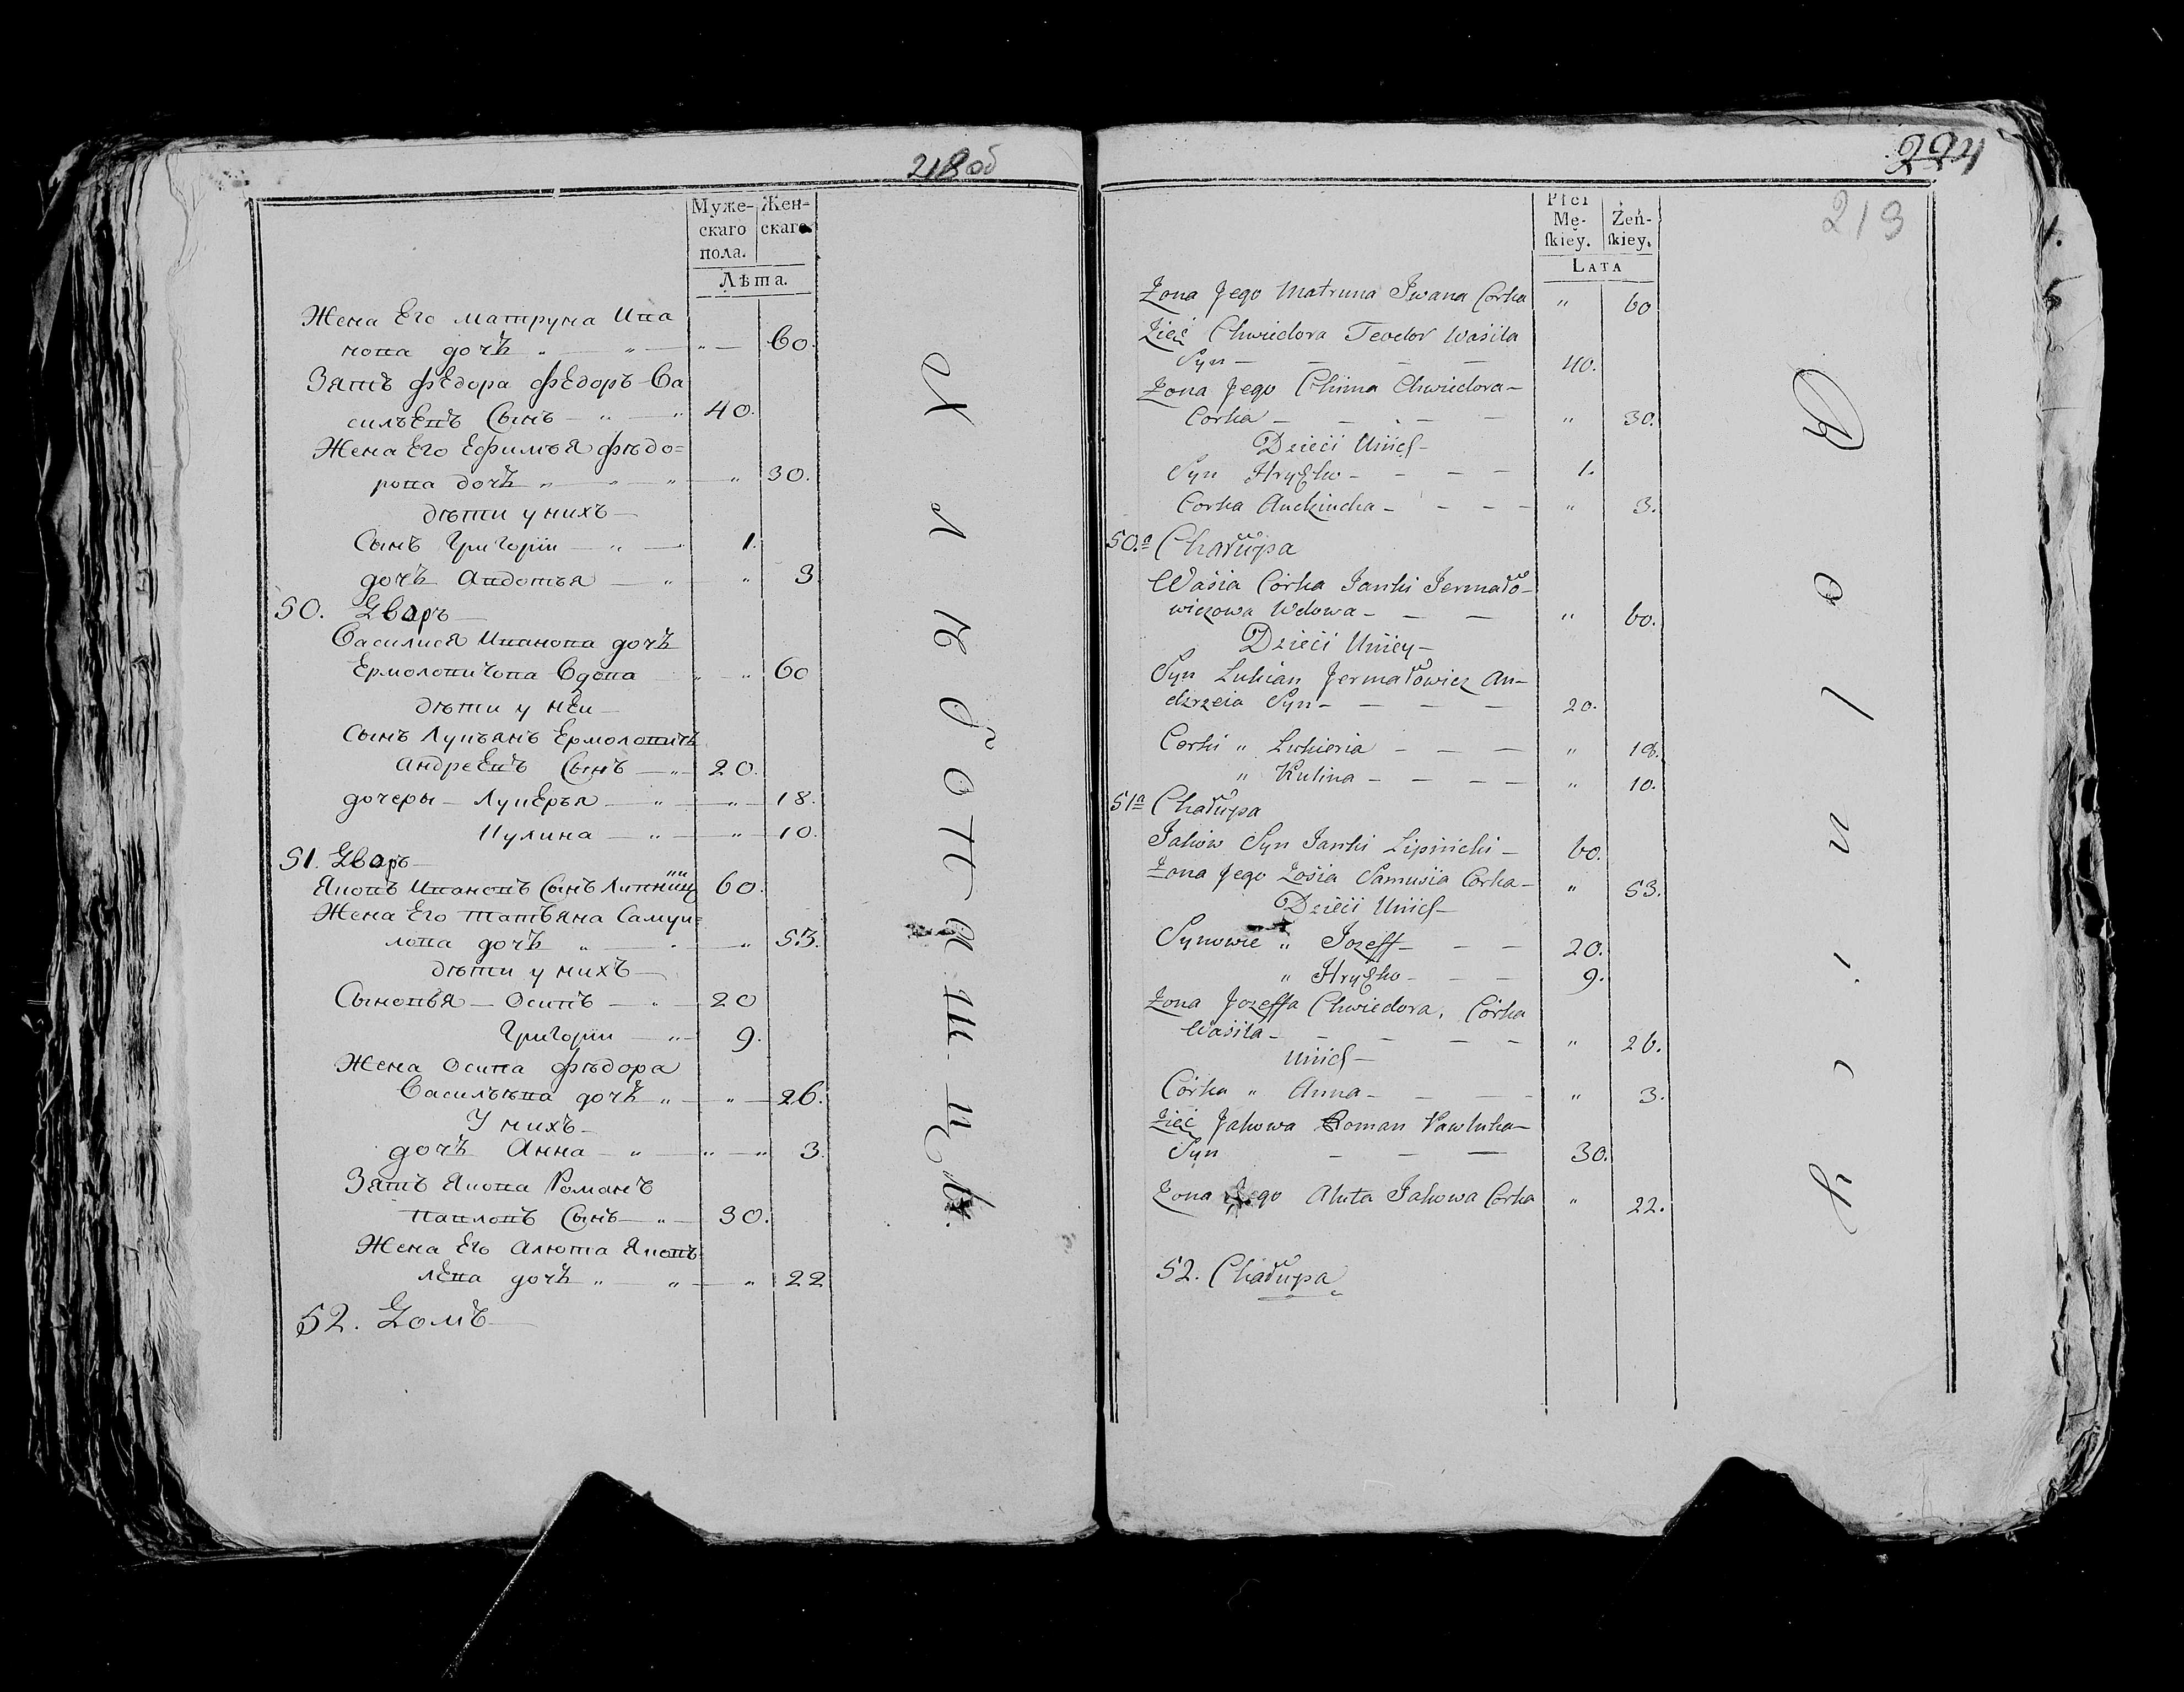 218 об
Муже-
скаго
пола.
Жен-
скаго
Лѣта.
Жена Его матруна Ива
нова дочь „ „ „ 60.
Зять фЕдора фЕдоръ Ва
сильЕвъ Сынъ „ „ 40.
Жена Его Ефимья фѣдо=
рова дочь „ „ „ „ 30.
дѣти у нихъ
Сынъ Григорiи „ 1.
дочь Авдотья „ „ 3
50. Дворъ
Василиса Иванова дочь
Ермоловичова Вдова „ „ 60
дѣти у нЕи
Сынъ Лукъянъ Ермоловичъ
андреЕвъ Сынъ „ 20.
дочеры Лукерья „ „ 18.
Кулина „ „ 10.
51. Дворъ
Яковъ Ивановъ Сынъ 60.
Жена Его татьяна Самуи=
лова дочь „ „ „ 53.
дѣти у нихъ
Сыновья Осипъ „ 20
Григорiи „ 9.
Жена Осипа фѣдора
Васильѣва дочь „ „ 26.
У нихъ
дочь Анна „ „ „ 3.
Зять Якова Романъ
Павловъ Сынъ „ 30.
Жена Его алюта Яковъ
лЕва дочь „ „ „ 22
52. Домъ
224
219
Płci
Mę-
ſkiey.
Żeń-
ſkiey.
LATA
Żona Jego Matruna Jwana Corka „ 60
Zięć Chwiedora Teodor Wasila
Syn 40.
Żona Jego Chima Chwiedora
Corka „ 30.
Dzieci Unich
Syn Hryćko 1.
Corka Auchimka „ 3.
50.a Chałupa
Wasia Córka Janki Jermało-
wiczowa Wdowa „ 60.
Dzieci Uniey
Syn Lukian Jermałowicz An-
drzeia Syn 20.
Corki „ Lukieria „ 18.
„ Kulina „ 10.
51a Chałupa
Jakow Syn Janki Lipnicki 60.
Żona Jego Zosia Samusia Corka „ 53.
Dzieci Unich
Synowie „ Jozeff 20.
„ Hryćko 9.
Żona Jozeffa Chwiedora, Córka
Wasila „ 26.
Unich
Córka „ Anna „ 3.
Zięć Jakowa Roman Pawluka
Syn 30.
Żona Jego Aluta Jakowa Corka „ 22.
52. Chałupa